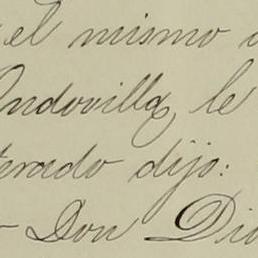 el mismo
Andovilla, le
terado dijo:
Don Die